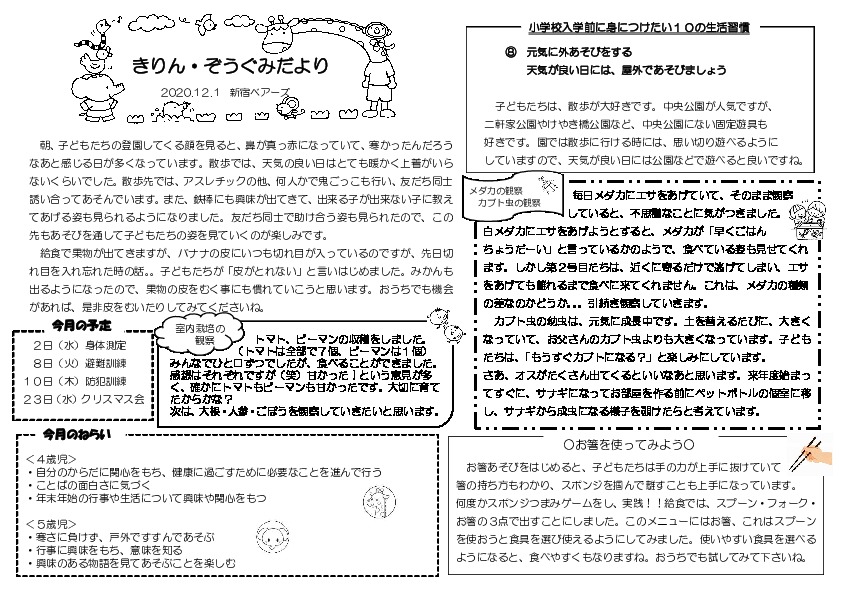 きりん・ぞうぐみだより
2020.12.1　新宿ベアーズ
朝、子どもたちの登園してくる顔を見ると、鼻が真っ赤になっていて、寒かったんだろう
なあと感じる日が多くなっています。散歩では、天気の良い日はとても暖かく上着がいら
ないくらいでした。散歩先では、アスレチックの他、何人かで鬼ごっこも行い、友だち同士
誘い合ってあそんでいます。また、鉄棒にも興味が出てきて、出来る子が出来ない子に教え
てあげる姿も見られるようになりました。友だち同士で助け合う姿も見られたので、この
先もあそびを通して子どもたちの姿を見ていくのが楽しみです。
給食で果物が出てきますが、バナナの皮にいつも切れ目が入っているのですが、先日切
れ目を入れ忘れた時の話。。子どもたちが「皮がとれない」と言いはじめました。みかんも
出るようになったので、果物の皮をむく事にも慣れていこうと思います。おうちでも機会
があれば、是非皮をむいたりしてみてくださいね。
今月の予定
2日（水）身体測定
8日（火）避難訓練
10日（木）防犯訓練
23日（水）クリスマス会
室内栽培の
観察
トマト、ピーマンの収穫をしました。
（トマトは全部で7個、ピーマンは1個）
みんなでひと口ずつでしたが、食べることができました。
感想はそれぞれですが（笑）甘かった！という意見が多
く、確かにトマトもピーマンも甘かったです。大切に育て
たからかな？
次は、大根・人参・ごぼうを観察していきたいと思います。
今月のねらい
＜４歳児＞
・自分のからだに関心をもち、健康に過ごすために必要なことを進んで行う
・ことばの面白さに気づく
・年末年始の行事や生活について興味や関心をもつ
＜５歳児＞
・寒さに負けず、戸外ですすんであそぶ
・行事に興味をもち、意味を知る
・興味のある物語を見てあそぶことを楽しむ
小学校入学前に身につけたい１０の生活習慣
⑧　元気に外あそびをする
天気が良い日には、屋外であそびましょう
子どもたちは、散歩が大好きです。中央公園が人気ですが、
二軒家公園やけやき橋公園など、中央公園にない固定遊具も
好きです。園では散歩に行ける時には、思い切り遊べるように
していますので、天気が良い日には公園などで遊べると良いですね。
メダカの観察
カブト虫の観察
毎日メダカにエサをあげていて、そのまま観察
していると、不思議なことに気がつきました。
白メダカにエサをあげようとすると、メダカが「早くごはん
ちょうだーい」と言っているかのようで、食べている姿も見せてくれ
ます。しかし第２号目たちは、近くに寄るだけで逃げてしまい、エサ
をあげても離れるまで食べに来てくれません。これは、メダカの種類
の差なのかどうか．．．引続き観察していきます。
カブト虫の幼虫は、元気に成長中です。土を替えるたびに、大きく
なっていて、お父さんのカブト虫よりも大きくなっています。子ども
たちは、「もうすぐカブトになる？」と楽しみにしています。
さあ、オスがたくさん出てくるといいなあと思います。来年度始まっ
てすぐに、サナギになってお部屋を作る前にペットボトルの個室に移
し、サナギから成虫になる様子を覗けたらと考えています。
〇お箸を使ってみよう〇
お箸あそびをはじめると、子どもたちは手の力が上手に抜けていて
箸の持ち方もわかり、スポンジを掴んで離すことも上手になっています。
何度かスポンジつまみゲームをし、実践！！給食では、スプーン・フォーク・
お箸の３点で出すことにしました。このメニューにはお箸、これはスプーン
を使おうと食具を選び使えるようにしてみました。使いやすい食具を選べる
ようになると、食べやすくもなりますね。おうちでも試してみて下さいね。